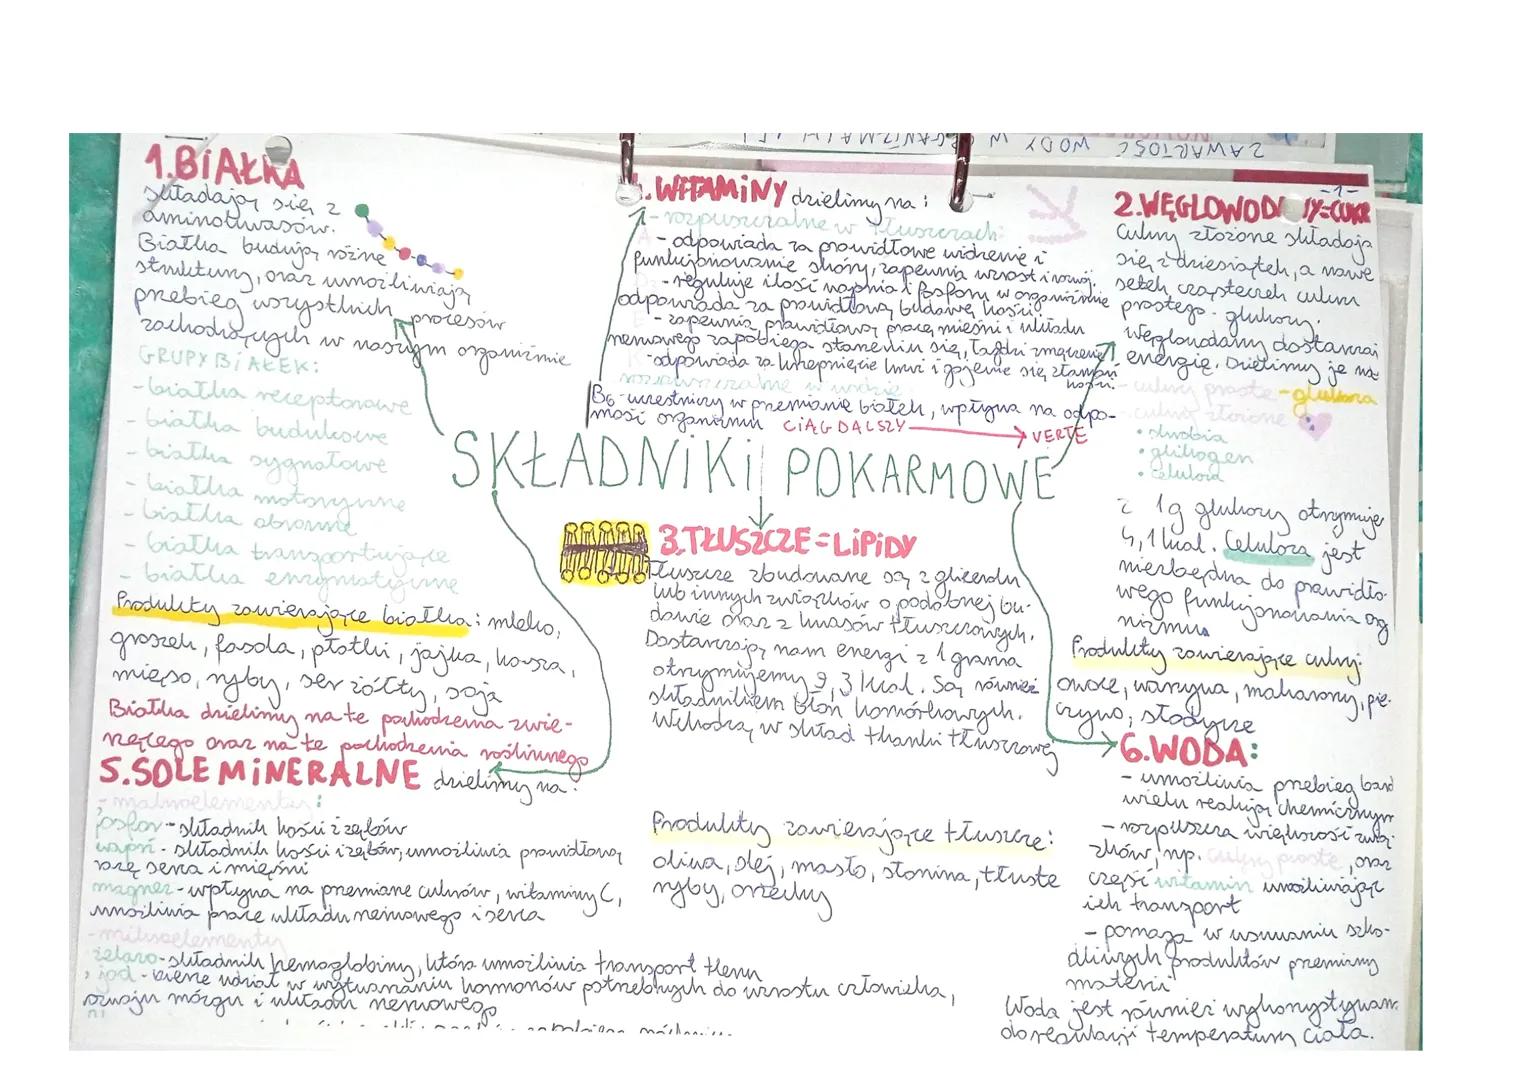 ZAWARTOŚĆ WODY W
1. BIAŁKA
składają się z
aminokwasów.
Białka budują różne
struktury, oraz umożliwiają
przebieg wszystkich procesów
zachodzących w naszym organizmie
GRUPY BIAŁEK:
- białka receptorowe
- białka budulcowe
- białka sygnałowe
- białka motoryczne
- białka obronne
- białka transportujące
- białka enzymatyczne
Produkty zawierające białka: mleko,
groszek, fasola, płatki, jajka, kasza,
mięso, ryby, ser żółty, soja
Białka dzielimy na te pochodzenia zwie-
rzęcego oraz na te pochodzenia roślinnego
WITAMINY dzielimy na:
- rozpuszczalne w tłuszczach:
A - odpowiada za prawidłowe widzenie i
funkcjonowanie skóry, zapewnia wzrost i rozwój.
- reguluje ilość wapnia i fosforu w organizmie
odpowiada za prawidłową budowę kości
E - zapewnia prawidłową pracę mięśni i układu
nerwowego zapobiega starzeniu się, łagdzi zmęczenie
K - odpowiada za krzepnięcie krwi i gojenie się złamań
kości
rozpuszczalne w wodzie
B6 - uczestniczy w przemianie białek, wpływa na odpo-
rność organizmu CIĄG DALSZY → VERTE
- 1 -
2. WĘGLOWOD Y = CUKR
Cukry złożone składają
się z dziesiątek, a nawet
setek cząsteczek cukru
prostego - glukozy.
Węglowodany dostarczaj
energię. Dzielimy je na
- cukry proste - glukoza
- cukry złożone
• skrobia
• glikogen
• celuloza
z 1g glukozy otrzymuje
4,1 kcal. Celuloza jest
niezbędna do prawidło-
wego funkcjonowania org
nizmu
Produkty zawierające cukry:
owoce, warzywa, makarony, pie-
czywo, słodycze
SKŁADNIKI POKARMOWE
3. TŁUSZCZE = LIPIDY
Tłuszcze zbudowane są z glicerolu
lub innych związków o podobnej bu-
dowie oraz z kwasów tłuszczowych.
Dostarczają nam energi z 1 grama
otrzymujemy 9,3 kcal. Są również
składnikiem błon komórkowych.
Wchodzą w skład tkanki tłuszczowej
Produkty zawierające tłuszcze:
oliwa, olej, masło, słonina, tłuste
ryby, orzechy
5. SOLE MINERALNE dzielimy na:
- makroelementy:
fosfor - składnik kości i zębów
wapń - składnik kości i zębów, umożliwia prawidłową
pracę serca i mięśni
magnez - wpływa na przemianę cukrów, witaminy C,
umożliwia pracę układu nerwowego i serca
- mikroelementy
żelazo - składnik hemoglobiny, która umożliwia transport tlenu
jod - bierze udział w wytwarzaniu hormonów potrzebnych do wzrostu człowieka,
rozwoju mózgu i układu nerwowego
6. WODA:
- umożliwia przebieg bard
wielu reakcji chemicznych
- rozpuszcza większość zwią-
zków, np. cukry proste, oraz
część witamin umożliwiając
ich transport
- pomaga w usuwaniu szko-
dliwych produktów przemiany
materii
Woda jest również wykorzystywan
do regulacji temperatury ciała.